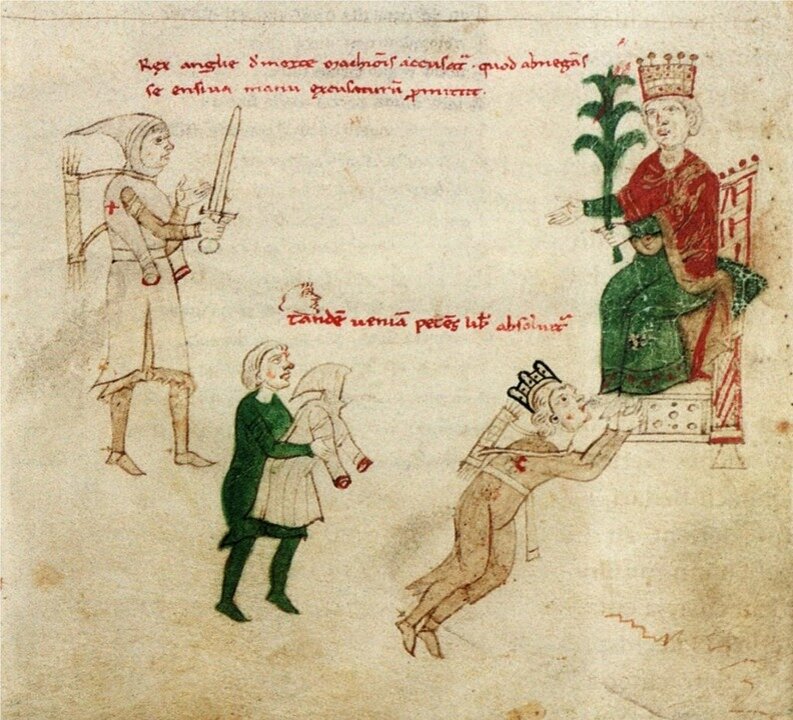 Rex anglie d morte marchiōis accusat̄ · quod abnegās
se ensiua manu excusaturū ꝓmittit.
tandē ueniā petēs lib̄ absoluit̄